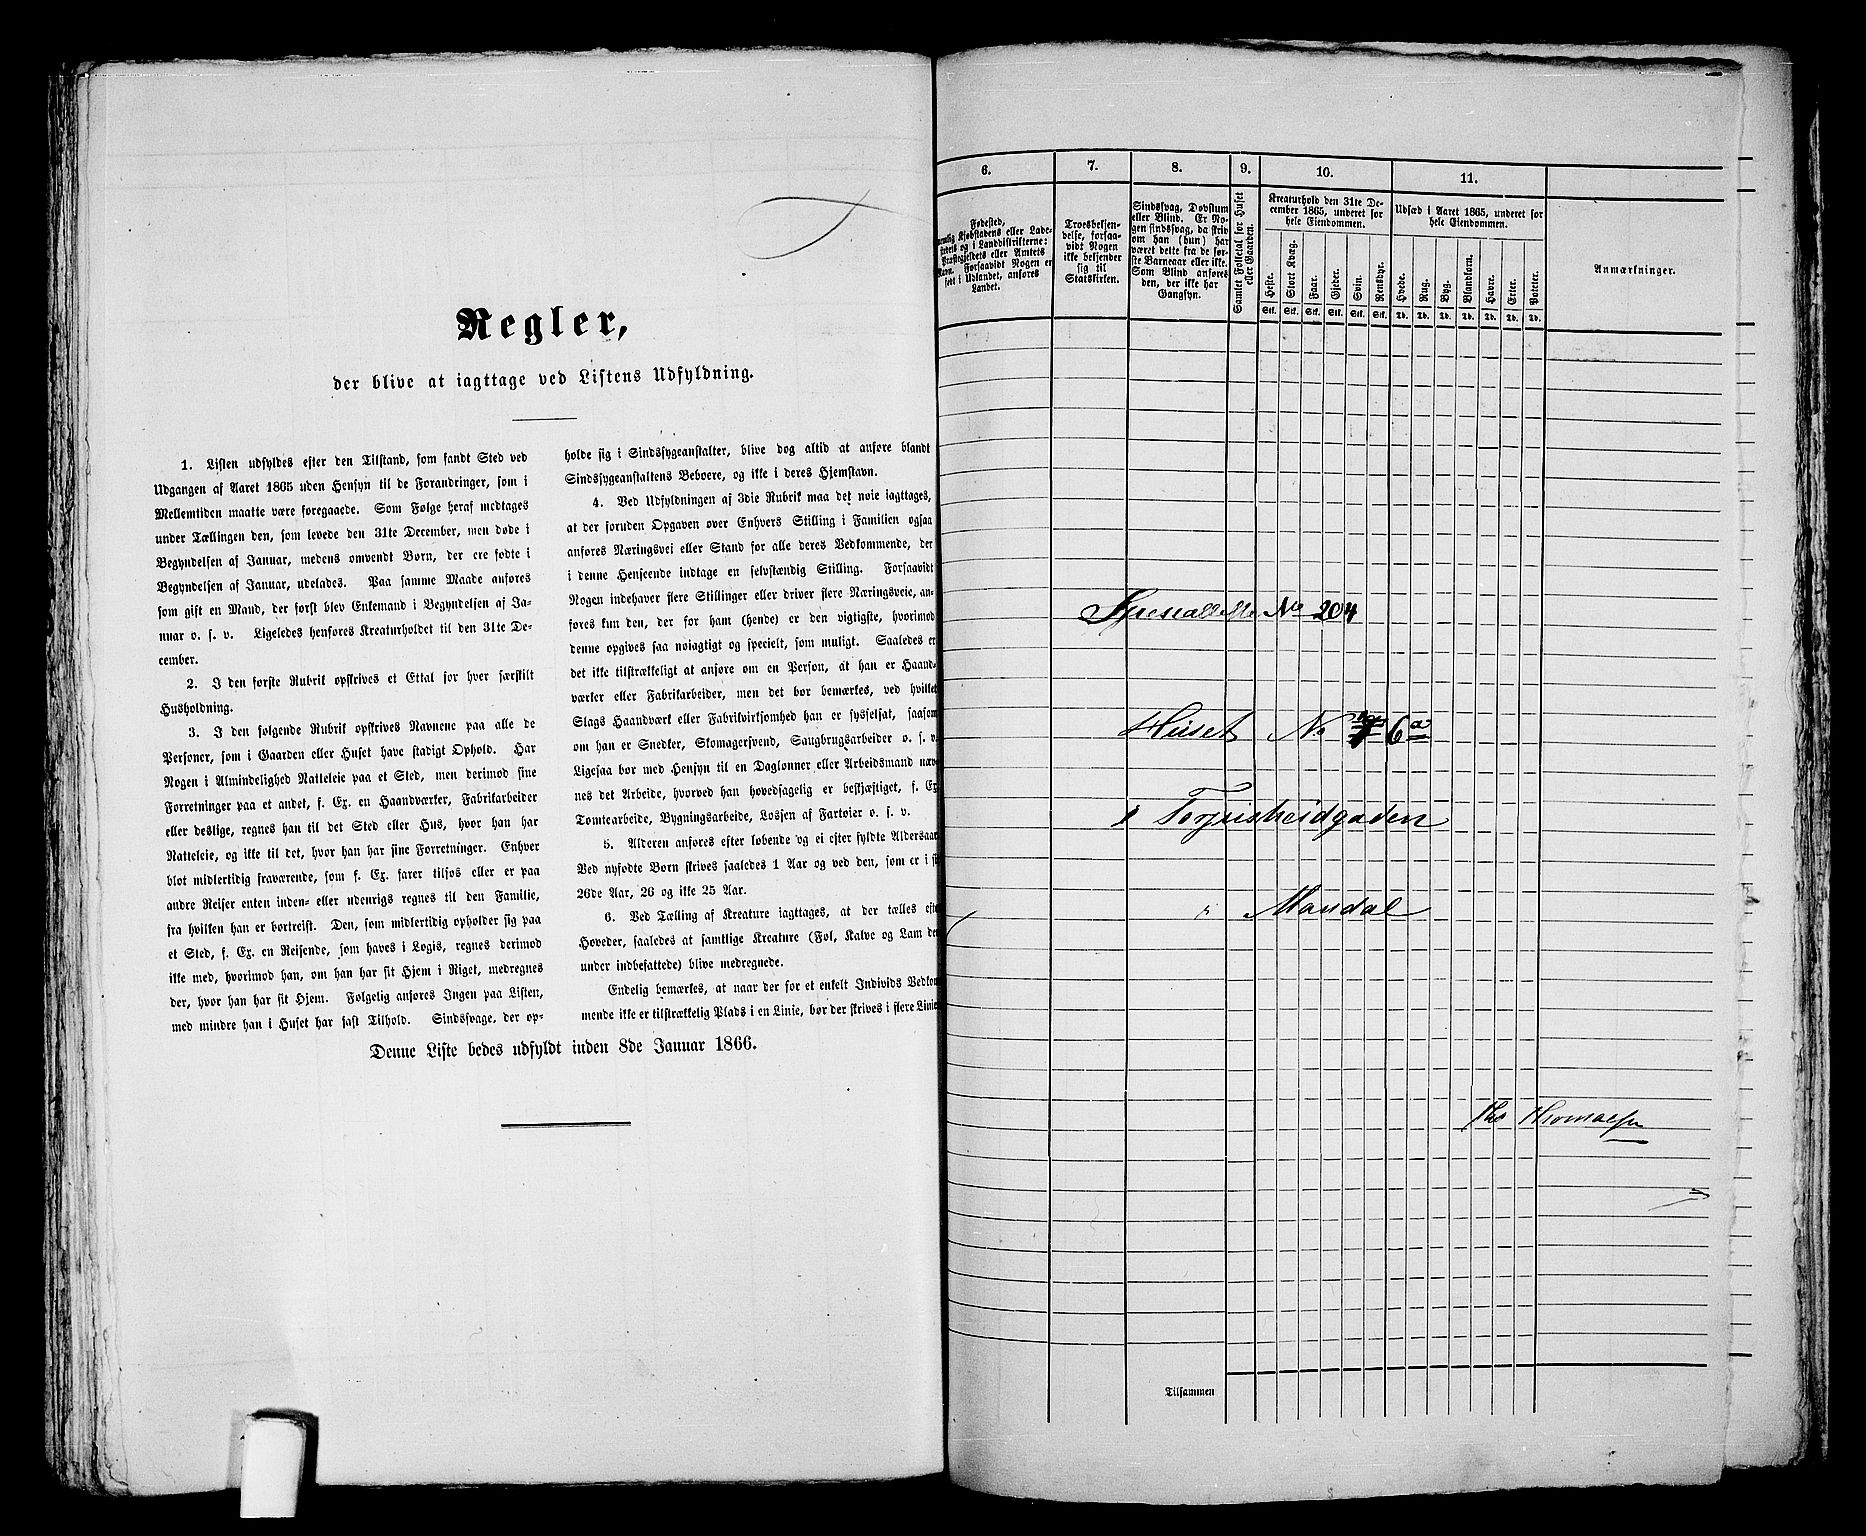 Regler,
der blive at iagttage ved Listens Udfyldning.
1. Listen udfyldes efter den Tilstand, som fandt Sted ved
Udgangen af Aaret 1865 uden Hensyn til de Forandringer, som i
Mellemtiden maatte være foregaaede. Som Følge heraf medtages
under Tællingen den, som levede den 31te December, men døde i
Begyndelsen af Januar, medens omvendt Børn, der ere fødte i
Begyndelsen af Januar, udelades. Paa samme Maade anføres
som gift en Mand, der først blev Enkemand i Begyndelsen af Ja-
nuar o. s. v. Ligeledes henføres Kreaturholdet til den 31te De-
cember.
2. I den første Rubrik opskrives et Ettal for hver særskilt
Husholdning.
3. I den følgende Rubrik opskrives Navnene paa alle de
Personer, som i Gaarden eller Huset have stadigt Ophold. Har
Nogen i Almindelighed Natteleie paa et Sted, men derimod sine
Forretninger paa et andet, f. Ex. en Haandværker, Fabrikarbeider
eller deslige, regnes han til det Sted eller Hus, hvor han har
Natteleie, og ikke til det, hvor han har sine Forretninger. Enhver
blot midlertidig fraværende, som f. Ex. farer tilsøs eller er paa
andre Reiser enten inden- eller udenrigs regnes til den Familie,
fra hvilken han er bortreist. Den, som midlertidig opholder sig paa
et Sted, f. Ex. en Reisende, som haves i Logis, regnes derimod
ikke med, hvorimod han, om han har sit Hjem i Riget, medregnes
der, hvor han har sit Hjem. Følgelig anføres Ingen paa Listen,
med mindre han i Huset har fast Tilhold. Sindssvage, der op-
holde sig i Sindssygeanstalter, blive dog altid at anføre blandt
Sindssygeanstaltens Beboere, og ikke i deres Hjemstavn.
4. Ved Udfyldningen af 3die Rubrik maa det nøie iagttages,
at der foruden Opgaven over Enhvers Stilling i Familien ogsaa
anføres Næringsvei eller Stand for alle deres Vedkommende, der
i denne Henseende indtage en selvstændig Stilling. Forsaavidt
Nogen indehaver flere Stillinger eller driver flere Næringsveie, an-
føres kun den, der for ham (hende) er den vigtigste, hvorimod
denne opgives saa nøiagtigt og specielt, som muligt. Saaledes er
det ikke tilstrækkeligt at anføre om en Person, at han er Haand-
værker eller Fabrikarbeider, men det bør bemærkes, ved hvilket
Slags Haandværk eller Fabrikvirksomhed han er sysselsat, saasom
om han er Snedker, Skomagersvend, Saugbrugsarbeider o. s. v.
Ligesaa bør med Hensyn til en Daglønner eller Arbeidsmand næv-
nes det Arbeide, hvorved han hovedsagelig er beskjæftiget, f. Ex
Tomtearbeide, Bygningsarbeide, Lossen af Fartøier o. s. v.
5. Alderen anføres efter løbende og ei efter fyldte Aldersaar
Ved nyfødte Børn skrives saaledes 1 Aar og ved den, som er i si
26de Aar, 26 og ikke 25 Aar.
6. Ved Tælling af Kreature iagttages, at der tælles efte
Hoveder, saaledes at samtlige Kreature (Føl, Kalve og Lam der
under indbefattede) blive medregnede.
Endelig bemærkes, at naar der for et enkelt Individs Vedkom
mende ikke er tilstrækkelig Plads i en Linie, bør der skrives i flere Linie
Denne Liste bedes udfyldt inden 8de Januar 1866.
6. 7. 8. 9. 10. 11.
Fødested,
nemlig Kjøbstadens eller Lade-
stedets og i Landdistrikterne:
Præstegjeldets eller Amtets
Navn. Forsaavidt Nogen er
født i Udlandet, anføres
Landet.
Troesbekjen-
delse, forsaa-
vidt Nogen
ikke bekjender
sig til
Statskirken.
Sindssvag, Døvstum
eller Blind. Er No-
gen sindssvag, da skriv
om han (hun) har
været dette fra de før-
ste Barneaar eller ikke.
Som Blind anføres
den, der ikke har
Gangsyn.
Samlet Folketal for Huset
eller Gaarden.
Kreaturhold den 31te De-
cember 1865, underet for
hele Eiendommen.
Heste. Stort Kvæg. Faar. Gjeder. Svin. Rensdyr.
Stk. Stk. Stk. Stk. Stk. Stk.
Udsæd i Aaret 1865, underet for
hele Eiendommen.
Hvede. Rug. Byg. Blandkorn. Havre. Erter. Poteter.
Td. Td. Td. Td. Td. Td. Td.
Anmærkninger.
No 204
Huset No 6 a
i Torjusheidgaden
i Mandal
Ths Thomassen
Tilsammen